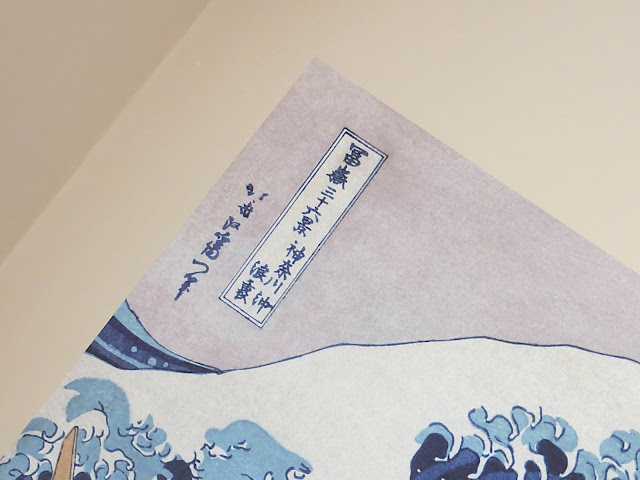 冨嶽三十六景 神奈川沖
浪裏
北斎改為一筆